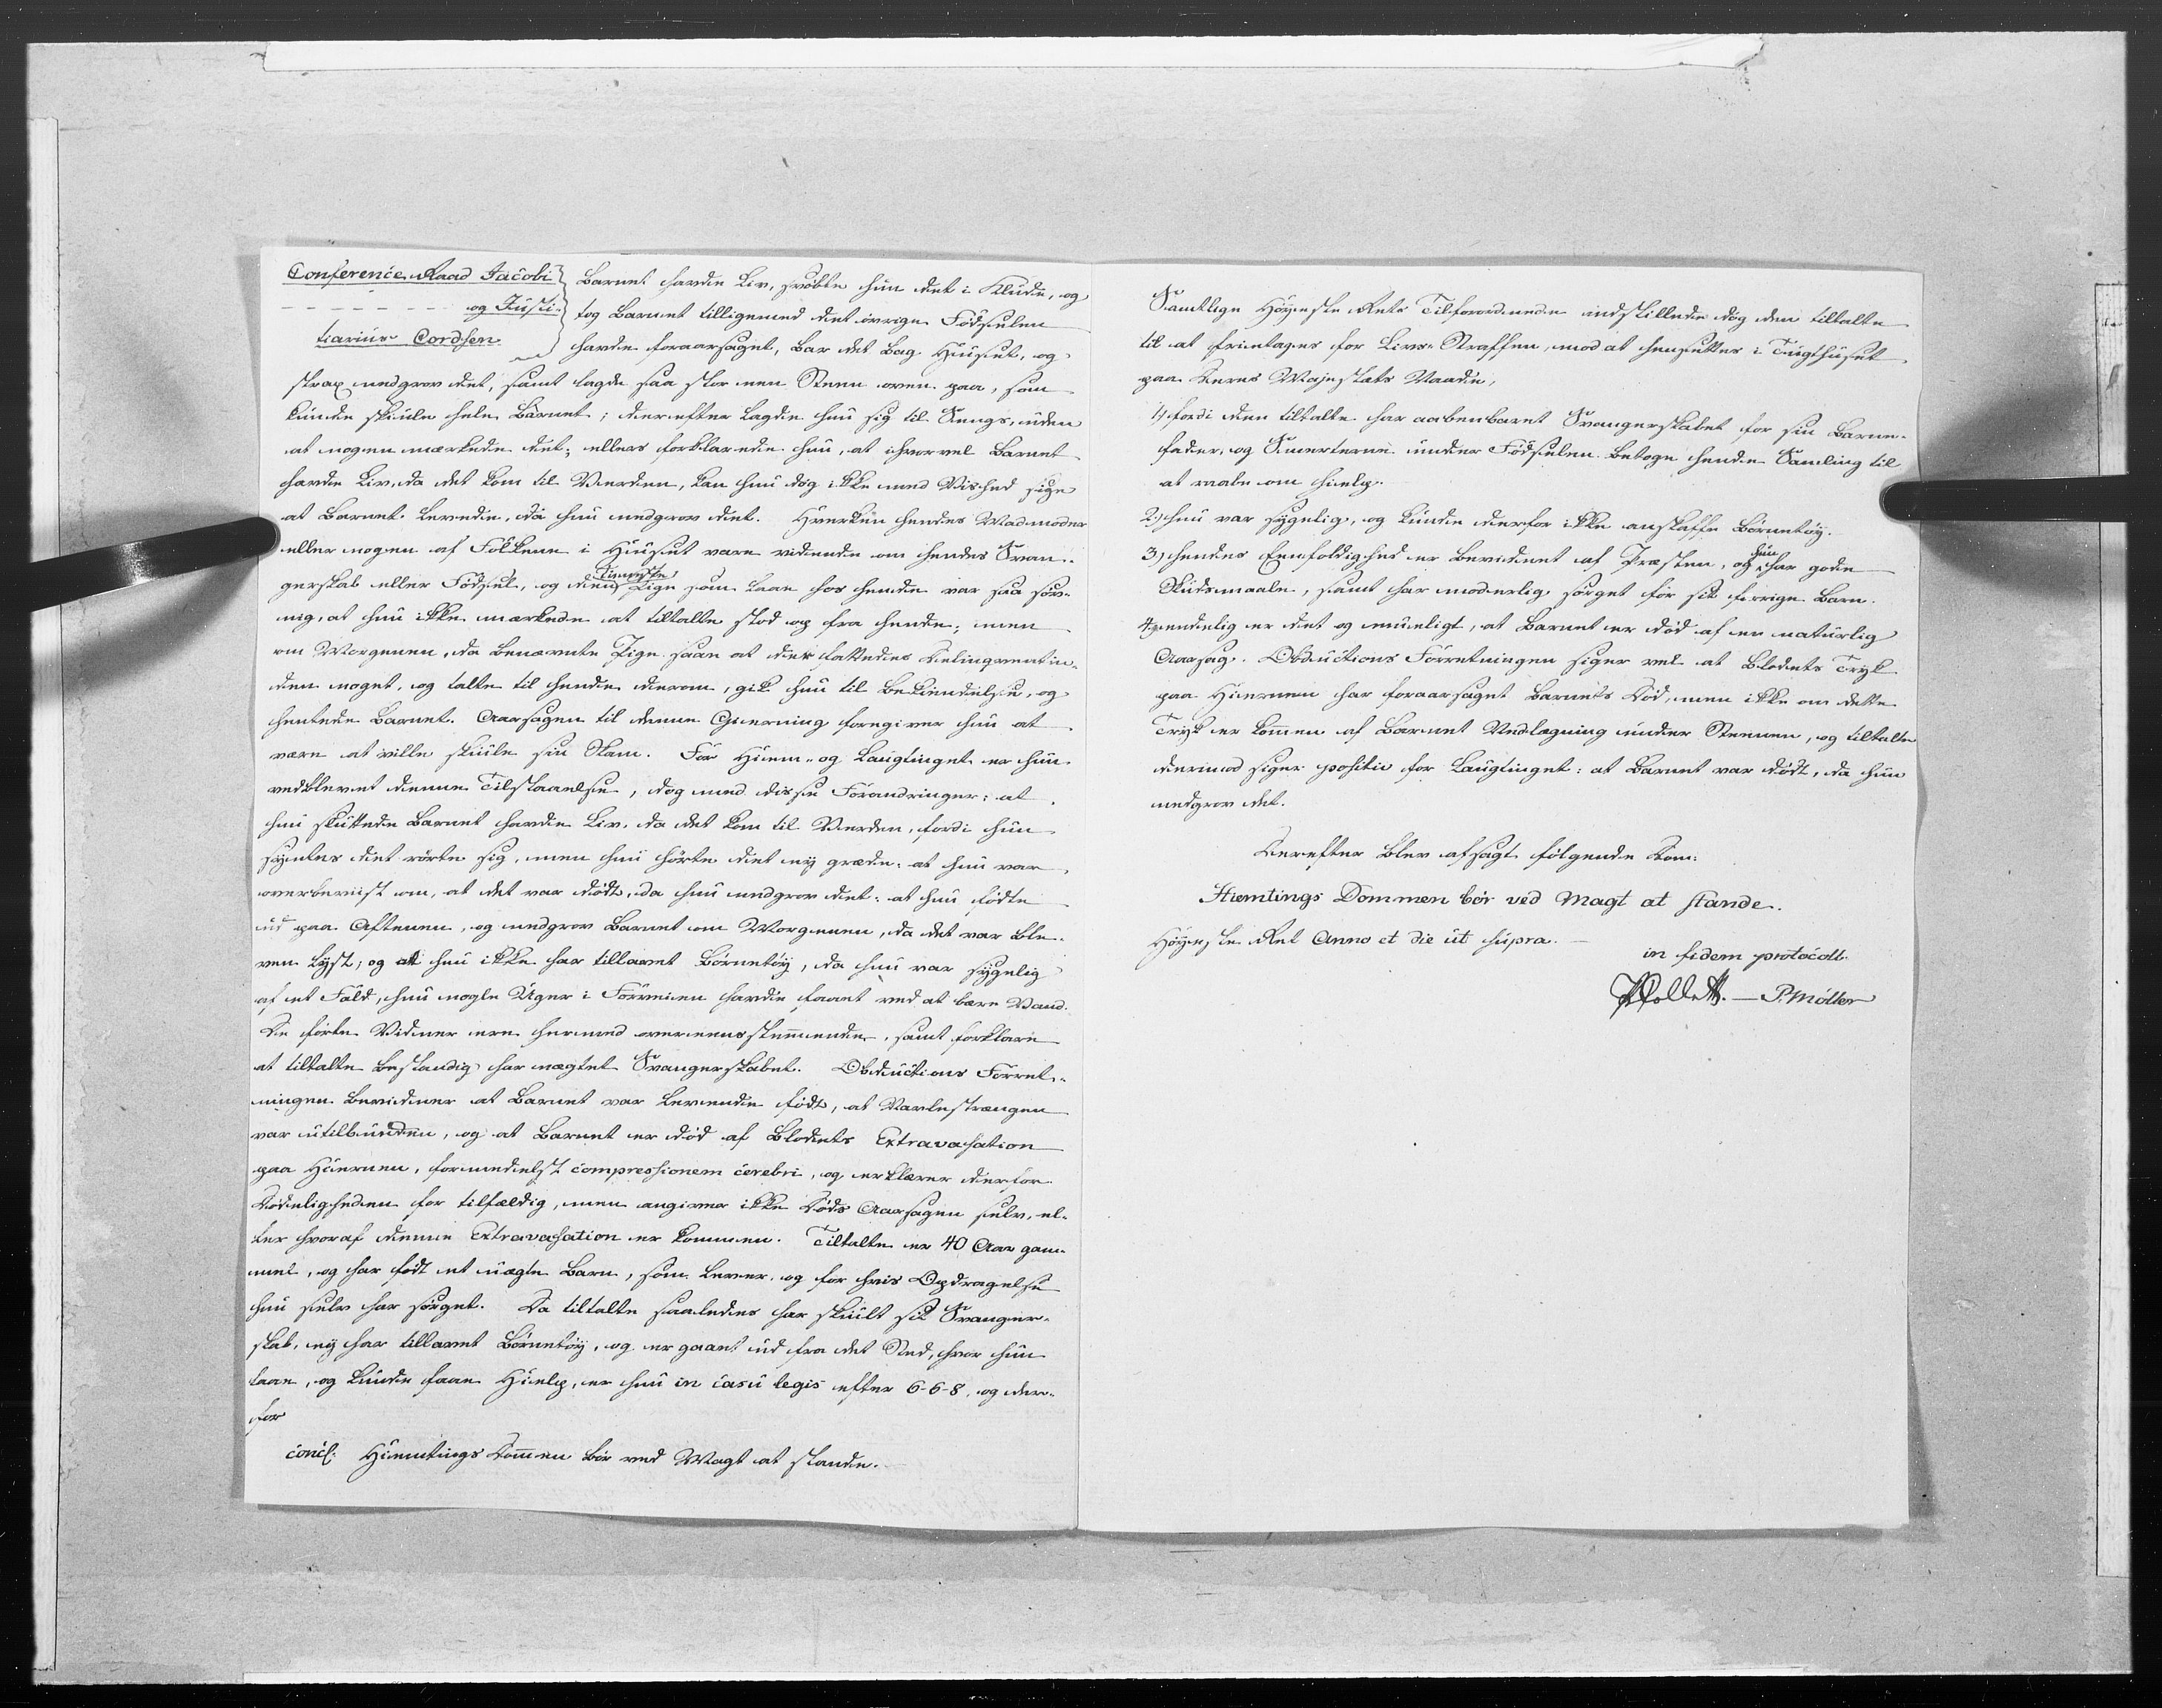 Conference Raad Jacobi
og Justi-
tiarius Cordsen
Barnet havde Liv, svøbte hun det i Klude, og
tog Barnet tilligemed det øvrige Fødselen
havde foraarsaget, bar det bag Huuset, og
strax nedgrov det, samt lagde saa stor een Steen oven paa, som
kunde skiule hele Barnet; derefter lagde hun sig til Sengs, uden
at nogen mærkede det; ellers forklarede hun, at ihvorvel Barnet
havde Liv, da det kom til Verden, kan hun dog ikke med Vished sige
at Barnet levede, da hun nedgrov det. Hverken hendes Madmoder
eller nogen af Folkene i Huuset vare vidende om hendes Svan-
gerskab eller Fødsel, og den Tieneste Pige som laae hos hende var saa søv-
nig, at hun ikke mærkede at tiltalte stod op fra hende; men
om Morgenen, da benævnte Pige saae at der fattedes Delinqventin-
den noget, og talte til hende derom, gik hun til Bekiendelse, og
hentede Barnet. Aarsagen til denne Gierning foregiver hun at
være at ville skiule sin Skam. For Hiem- og Laugtinget er hun
vedblevet denne Tilstaaelse, dog med disse Forandringer: at
hun skuttede Barnet havde Liv, da det kom til Verden, fordi hun
syntes det rørte sig, men hun hørte det ey græde: at hun var
overbeviist om, at det var dødt, da hun nedgrov det: at hun fødte
ud paa Aftenen, og nedgrov Barnet om Morgenen, da det var ble-
ven lyst; og at hun ikke har tillavet Børnetøy, da hun var sygelig
af et Fald, hun nogle Uger i Forveien havde faaet ved at bære Vand.
De førte Vidner ere hermed overeensstemmende, samt forklare
at tiltalte bestandig har nægtet Svangerskabet. Obductions Forret-
ningen beviidner at Barnet var levende født, at Navlestrængen
var utilbunden, og at Barnet er død af Blodets Extravasation
paa Hiernen, formedelst compressionem cerebri, og erklærer derfor
Dødeligheden for tilfældig, men angiver ikke Døds Aarsagen selv, el-
ler hvoraf denne Extravasation er kommen. Tiltalte er 40 Aar gam-
mel, og har født et uægte Barn, som lever, og for hvis Opdragelse
hun selv har sørget. Da tiltalte saaledes har skiult sit Svanger-
skab, ey har tillavet Børnetøy, og er gaaet ud fra det Sted, hvor hun
laae, og kunde faae Hielp, er hun in casu legis efter 6-6-8, og der-
for
concl: Hiemtings Dommen bør ved Magt at stande.
Samtlige Høyeste Rets Tilforordnede indstillede dog den tiltalte
til at frietages for Livs-Straffen, mod at hensettes i Tugthuset
paa Deres Majestæts Naade,
1) fordi den tiltalte har aabenbaret Svangerskabet for sin Barne-
fader, og Smerterne under Fødselen betoge hende Samling til
at raabe om Hielp.
2) hun var sygelig, og kunde derfor ikke anskaffe Børnetøy.
3) hendes Eenfoldighed er bevidnet af Præsten, og hun har gode
Skudsmaale, samt har moderlig sørget for sit forrige Barn.
4) endelig er det og mueligt, at Barnet er død af en naturlig
Aarsag. Obductions Forretningen siger vel at Blodets Tryk
paa Hiernen har foraarsaget Barnets Død, men ikke om dette
Tryk er kommen af Barnet Nedlægning under Steenen, og tiltalte
derimod siger positiv for Laugtinget: at Barnet var dødt, da hun
nedgrov det.
Derefter blev afsagt følgende Dom:
Hiemtings Dommen bør ved Magt at stande.
Høyeste Ret Anno et die ut supra.
in fidem protocoll.
P. Møller